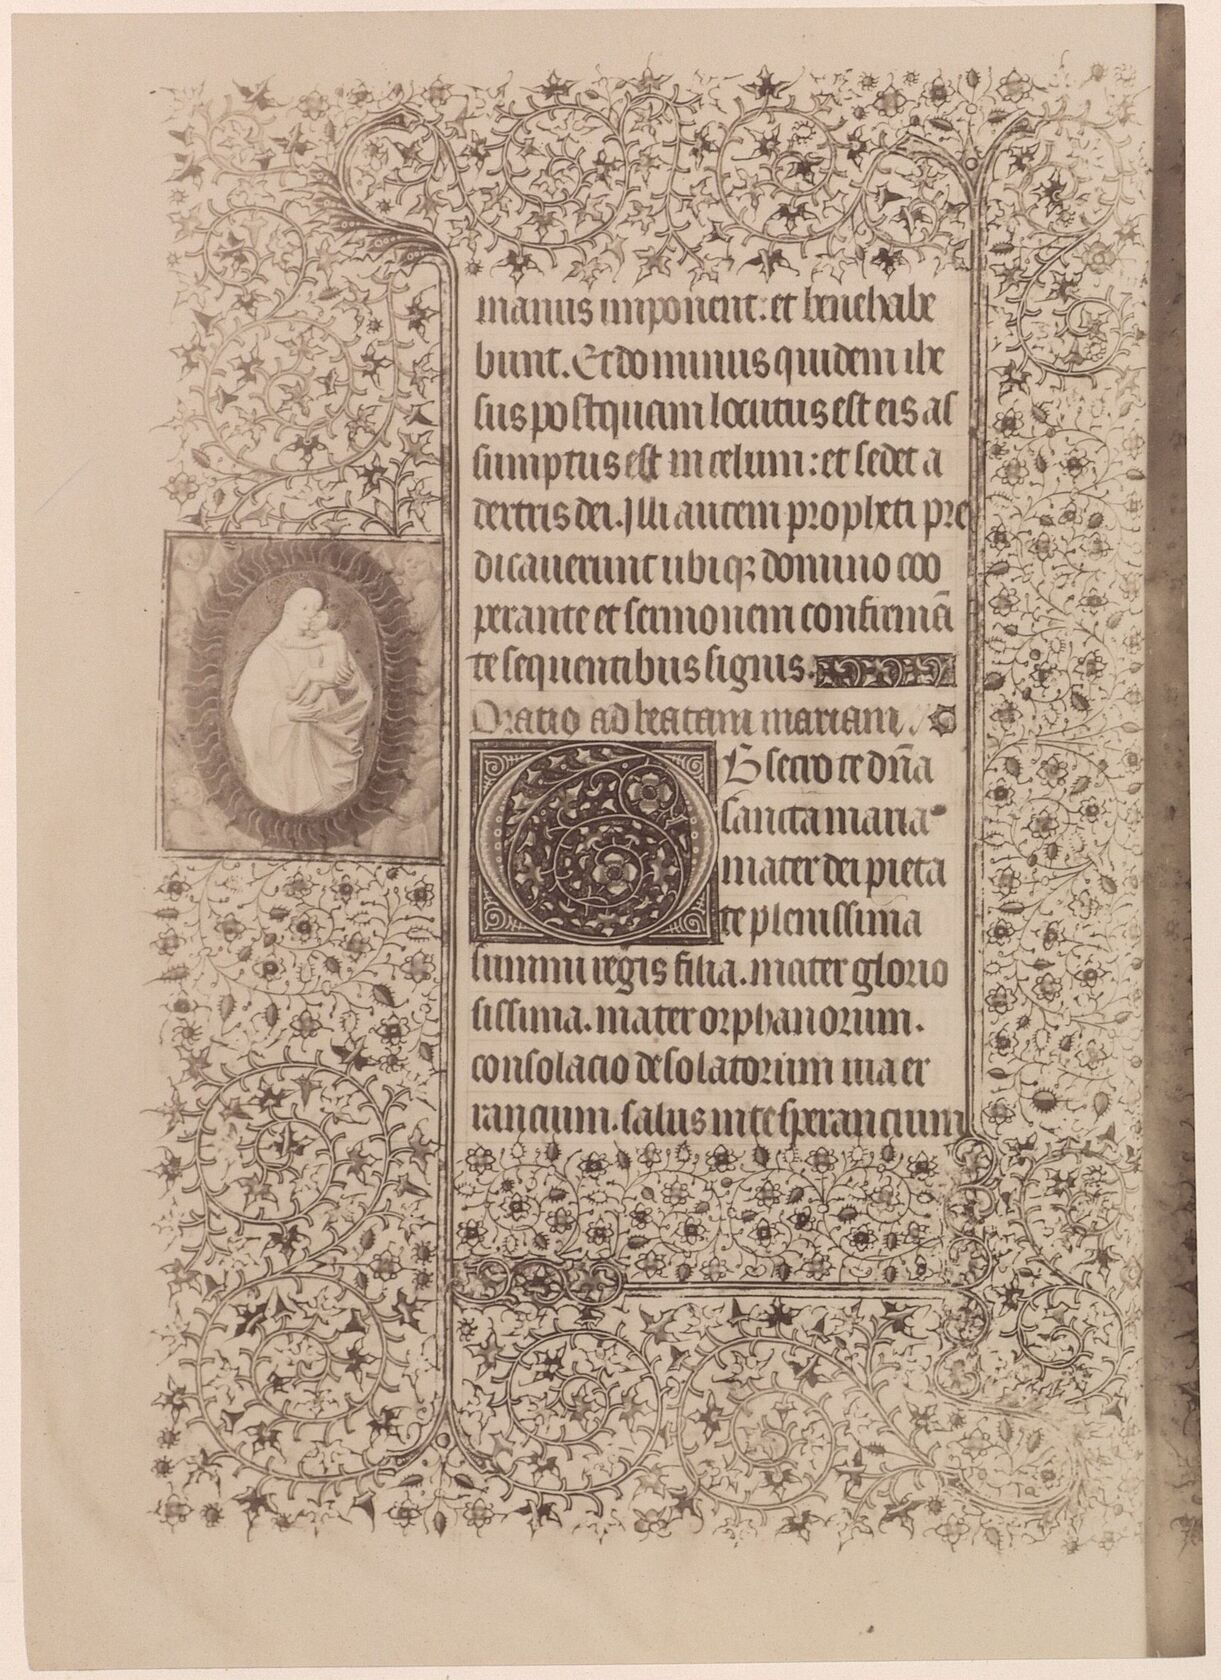 manus imponent: et benehabe
bunt. Et dominus quidem ihe
sus postquam locutus est eis as
sumptus est in celum: et sedet a
dextris dei. Illi autem propheti pre
dicauerunt ubiqꝫ domino coo
perante et sermonem confirmā
te sequentibus signis.
Oratio ad beatam mariam
Obsecro te dn̄a
sancta maria
mater dei pieta
te plenissima
summi regis filia. mater glorio
sissima. mater orphanorum.
consolacio desolatorum uia er
rancium. salus in te sperancium